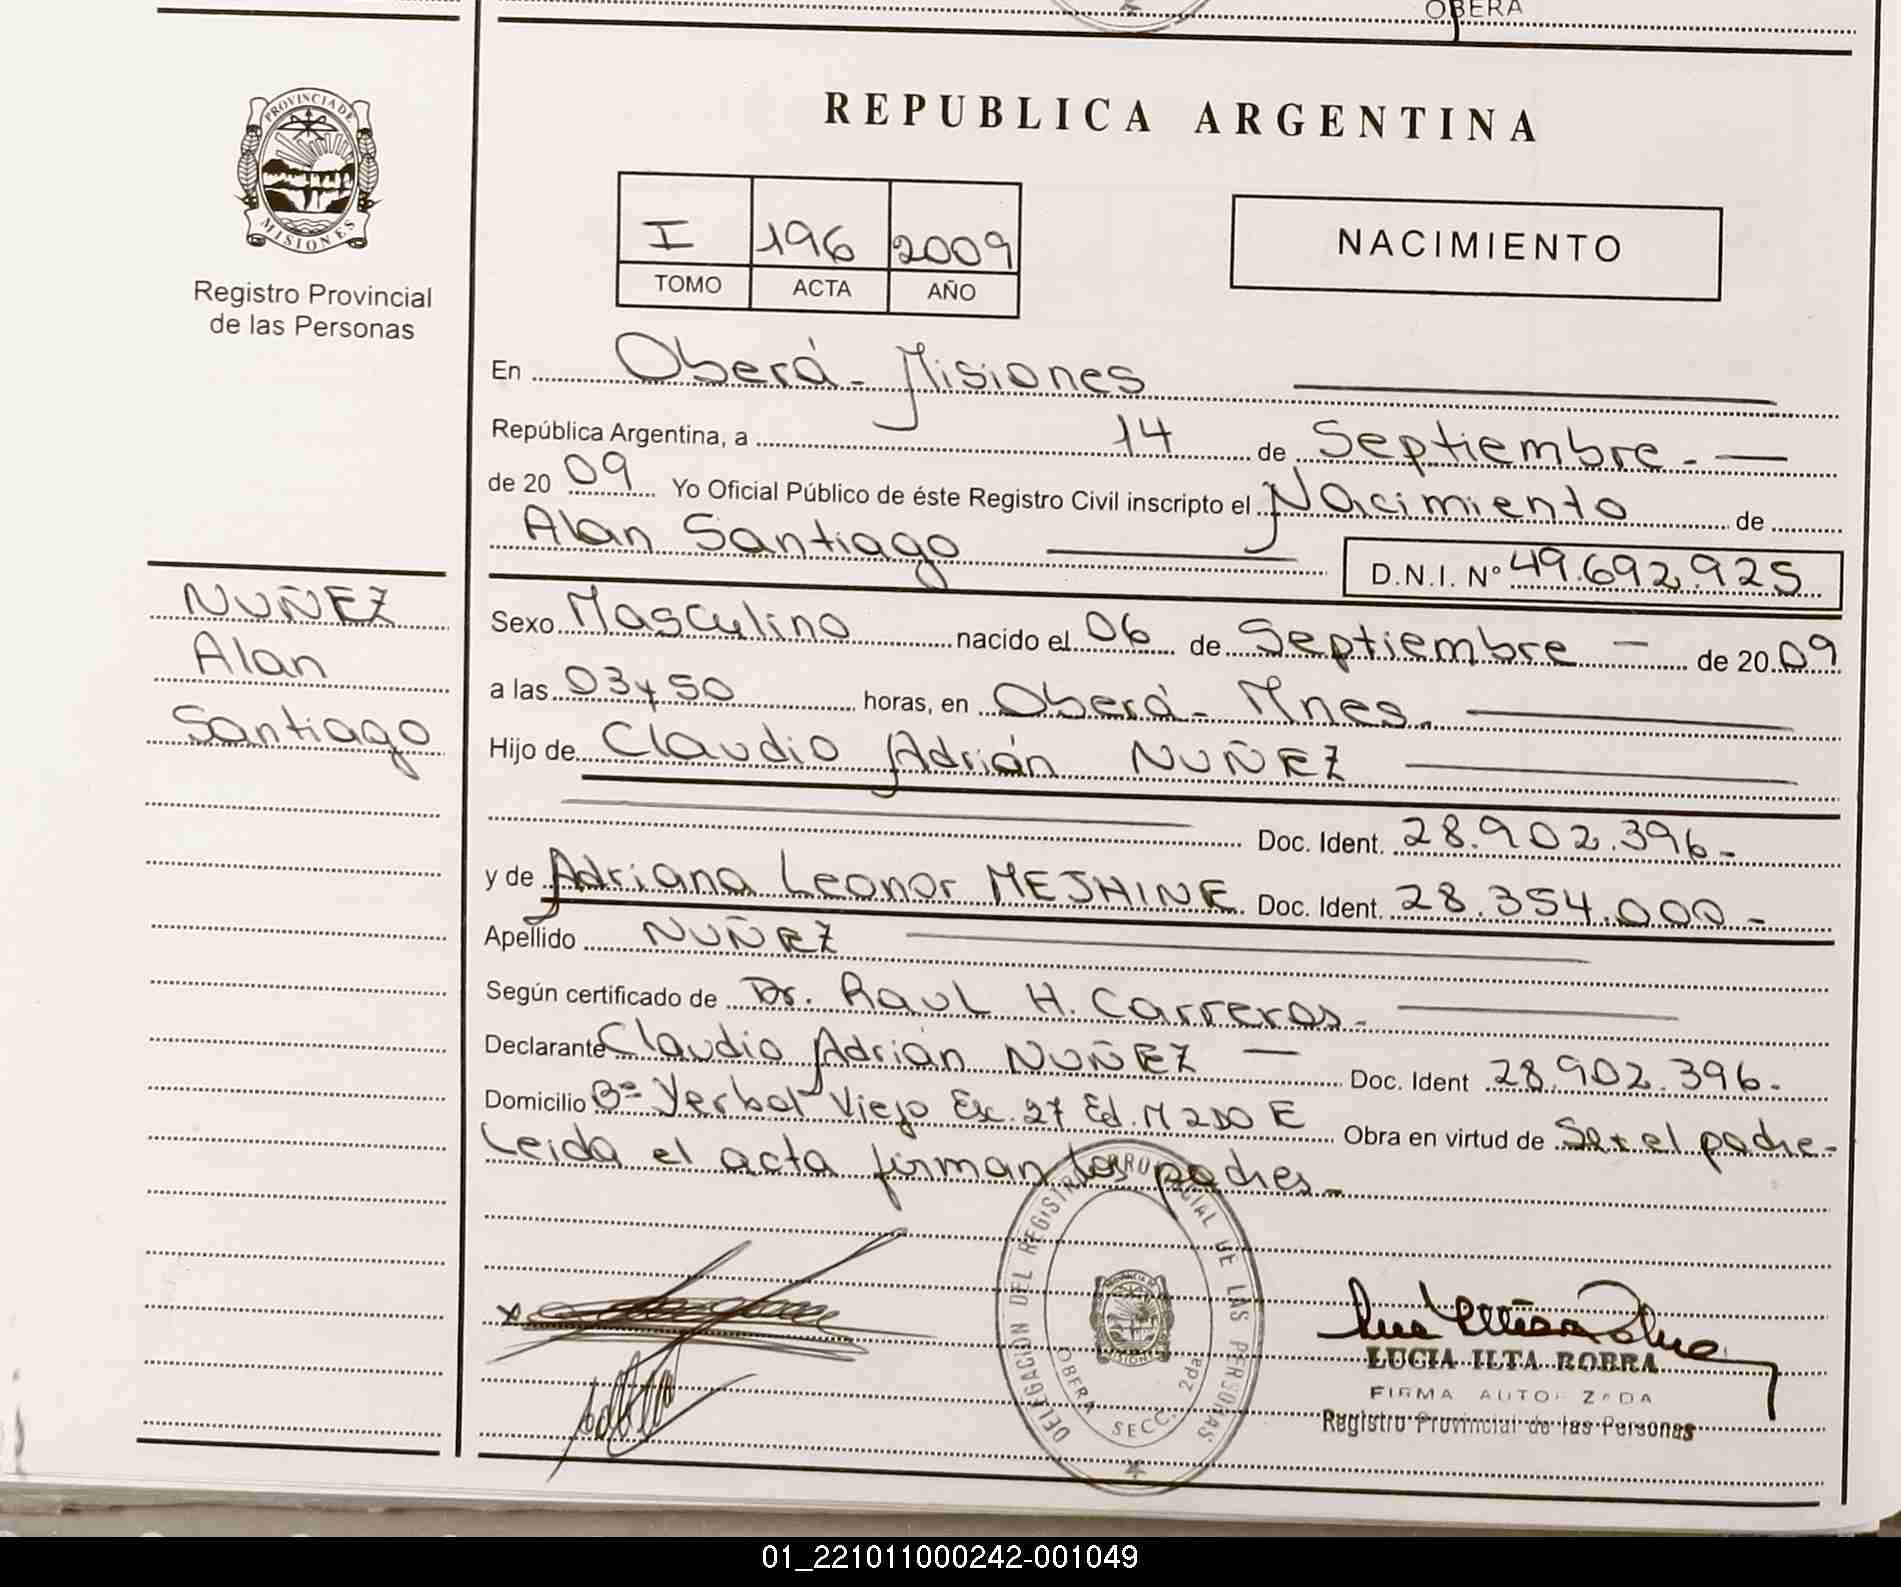 OBERA
PROVINCIA DE
MISIONES
Registro Provincial
de las Personas
REPUBLICA ARGENTINA
I 196 2009
TOMO ACTA AÑO
NACIMIENTO
En Oberá - Misiones
República Argentina, a 14 de Septiembre. -
de 20 09 Yo Oficial Público de éste Registro Civil inscripto el Nacimiento de
Alan Santiago D.N.I. Nº 49.692.925
NUÑEZ
Alan
Santiago
Sexo Masculino nacido el 06 de Septiembre - de 20 09
a las 03 y 50 horas, en Oberá - Mnes.
Hijo de Claudio Adrián NUÑEZ
Doc. Ident. 28.902.396 -
y de Adriana Leonor MESHINE Doc. Ident. 28.354.000 -
Apellido NUÑEZ
Según certificado de Dr. Raul H. Carreras -
Declarante Claudio Adrián NUÑEZ - Doc. Ident 28.902.396 -
Domicilio Bº Yerbal Viejo Esc. 27 Ed. M 2do E Obra en virtud de Ser el padre -
Leida el acta firman los padres -
DELEGACIÓN DEL REGISTRO PROVINCIAL DE LAS PERSONAS
OBERA SECC. 2da
MISIONES
LUCIA ILTA ROBRA
FIRMA AUTORIZADA
Registro Provincial de las Personas
01_221011000242-001049